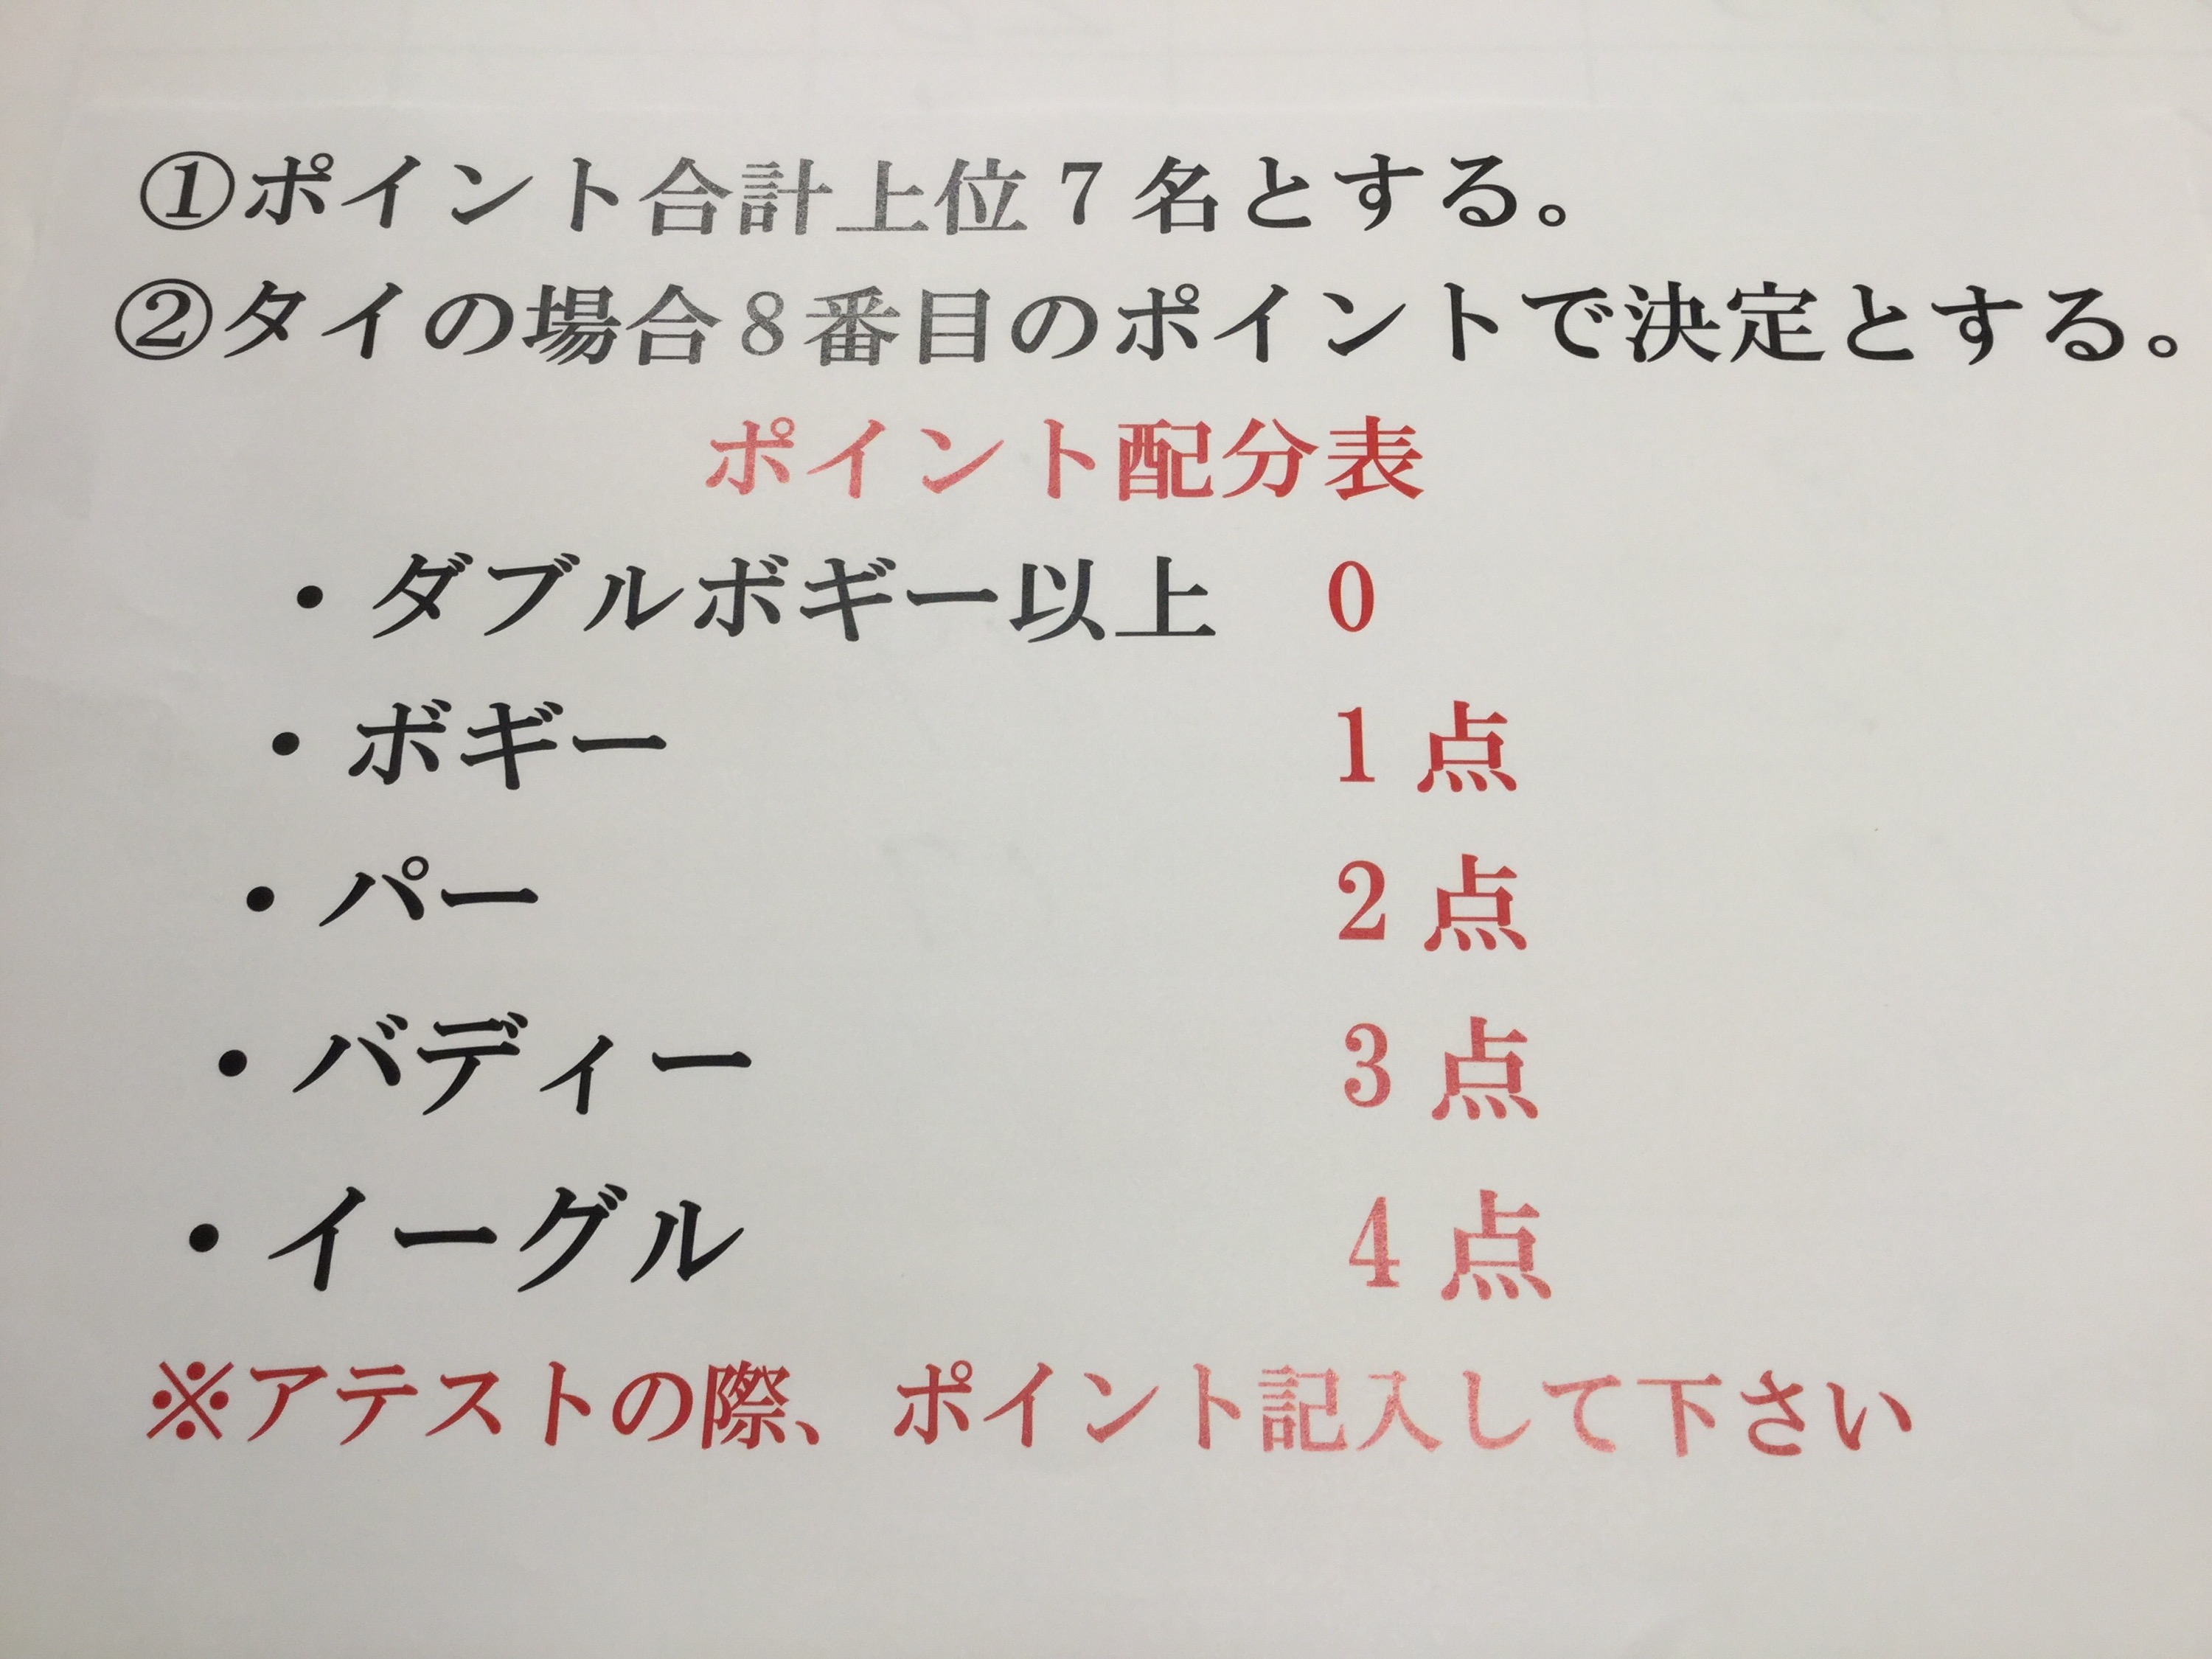 ①ポイント合計上位７名とする。
②タイの場合８番目のポイントで決定とする。
ポイント配分表
・ダブルボギー以上　0
・ボギー　1 点
・パー　2 点
・バディー　3 点
・イーグル　4 点
※アテストの際、ポイント記入して下さい